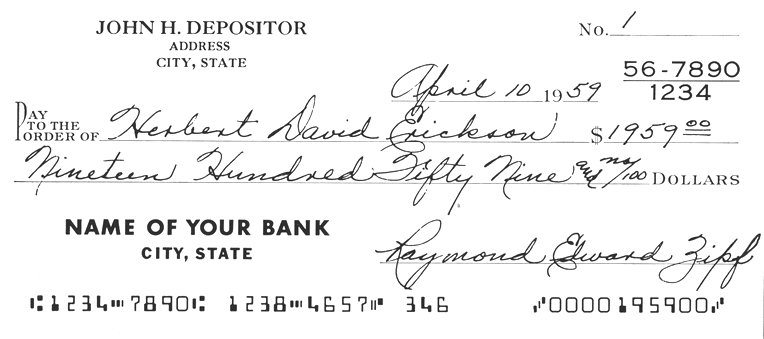 JOHN H. DEPOSITOR
ADDRESS
CITY, STATE
No. 1
April 10 1959
56-7890
1234
PAY TO THE ORDER OF Herbert David Erickson $1959 00
Nineteen Hundred Fifty Nine and no/100 DOLLARS
NAME OF YOUR BANK
CITY, STATE
Raymond Edward Zipf
⑆1234⑉7890⑆ 1238⑉4657⑈ 346 ⑇0000195900⑇